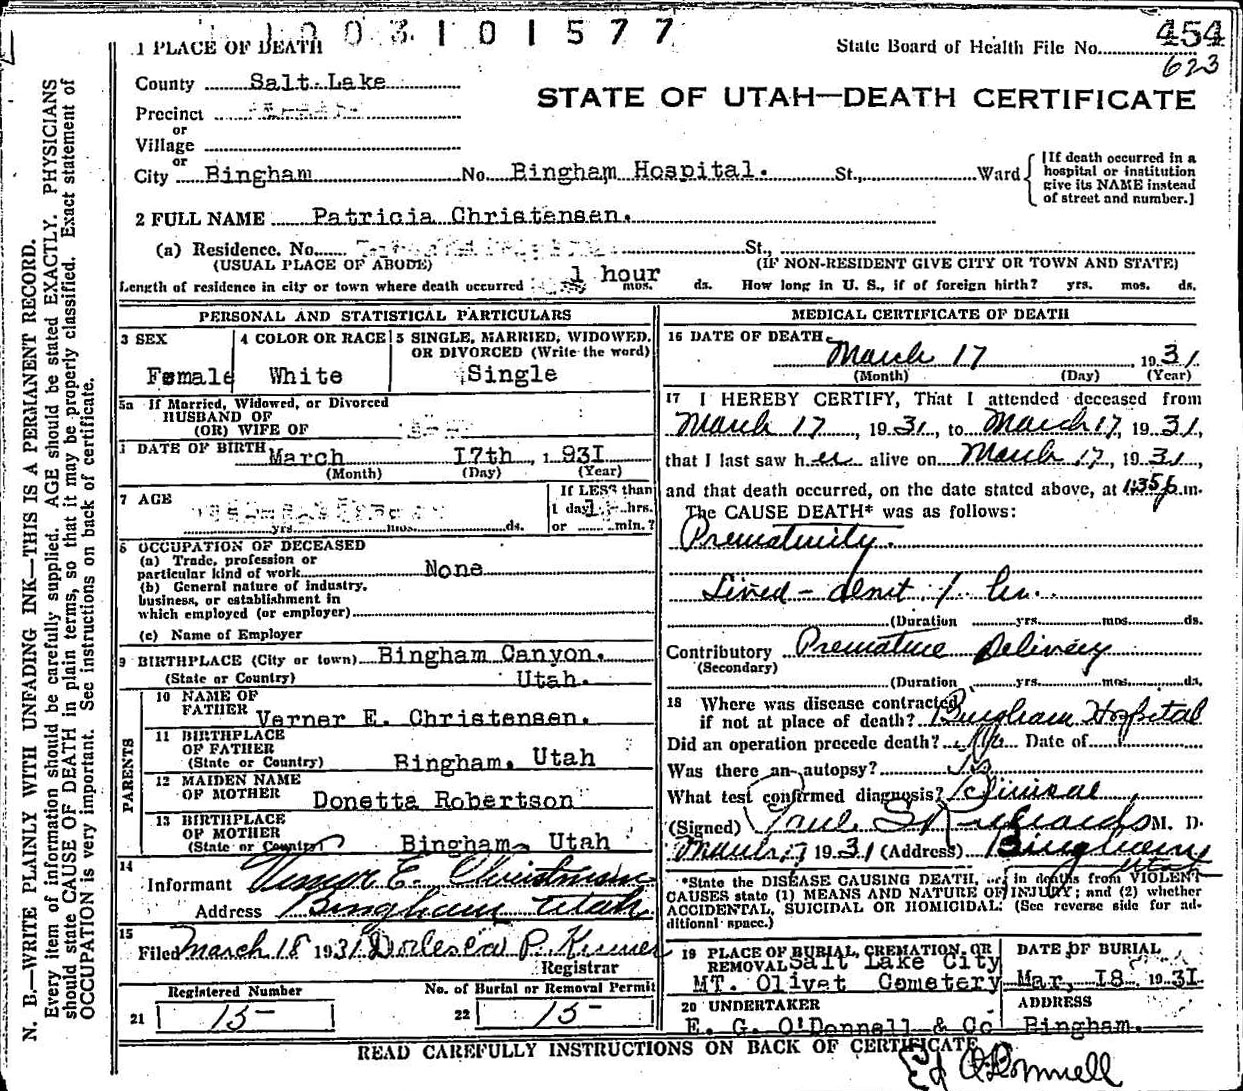 1003101577
1 PLACE OF DEATH
State Board of Health File No. 454
623
County Salt Lake
STATE OF UTAH—DEATH CERTIFICATE
Precinct
or
Village
or
City Bingham No. Bingham Hospital. St., Ward
[If death occurred in a hospital or institution give its NAME instead of street and number.]
2 FULL NAME Patricia Christensen.
(a) Residence. No. St.,
(USUAL PLACE OF ABODE) (IF NON-RESIDENT GIVE CITY OR TOWN AND STATE)
Length of residence in city or town where death occurred 1 hour mos. ds. How long in U. S., if of foreign birth? yrs. mos. ds.
PERSONAL AND STATISTICAL PARTICULARS
3 SEX 4 COLOR OR RACE 5 SINGLE, MARRIED, WIDOWED, OR DIVORCED (Write the word)
Female White Single
5a If Married, Widowed, or Divorced
HUSBAND OF
(OR) WIFE OF
DATE OF BIRTH March 17th, 1931
(Month) (Day) (Year)
7 AGE yrs. mos. ds.
If LESS than
1 day 1 hrs.
or min.?
OCCUPATION OF DECEASED
(a) Trade, profession or
particular kind of work None
(b) General nature of industry,
business, or establishment in
which employed (or employer)
(c) Name of Employer
9 BIRTHPLACE (City or town) Bingham Canyon.
(State or Country) Utah.
PARENTS
10 NAME OF
FATHER Verner E. Christensen.
11 BIRTHPLACE
OF FATHER
(State or Country) Bingham, Utah
12 MAIDEN NAME
OF MOTHER Donetta Robertson
13 BIRTHPLACE
OF MOTHER
(State or Country) Bingham, Utah
14
Informant Verner E. Christensen
Address Bingham Utah
15
Filed March 18 1931
Registrar
Registered Number No. of Burial or Removal Permit
21 15- 22 15-
MEDICAL CERTIFICATE OF DEATH
16 DATE OF DEATH
March 17, 1931
(Month) (Day) (Year)
17 I HEREBY CERTIFY, That I attended deceased from
March 17, 1931, to March 17, 1931,
that I last saw her alive on March 17, 1931,
and that death occurred, on the date stated above, at m.
The CAUSE DEATH* was as follows:
Prematurity.
Lived - about 1 hr.
(Duration yrs. mos. ds.
Contributory Premature Delivery
(Secondary)
(Duration yrs. mos. ds.
18 Where was disease contracted
if not at place of death? Bingham Hospital
Did an operation precede death? No Date of
Was there an autopsy? No
What test confirmed diagnosis? Clinical
(Signed) Paul S. Richards M. D.
March 17 1931 (Address) Bingham
Utah
*State the DISEASE CAUSING DEATH, or, in deaths from VIOLENT
CAUSES state (1) MEANS AND NATURE OF INJURY; and (2) whether
ACCIDENTAL, SUICIDAL OR HOMICIDAL. (See reverse side for ad-
ditional space.)
19 PLACE OF BURIAL, CREMATION, OR
REMOVAL Salt Lake City
MT. Olivet Cemetery
DATE OF BURIAL
Mar, 18 1931
20 UNDERTAKER
E. G. O'Donnell & Co
ADDRESS
Bingham.
READ CAREFULLY INSTRUCTIONS ON BACK OF CERTIFICATE
Ed O'Donnell
N. B.—WRITE PLAINLY WITH UNFADING INK—THIS IS A PERMANENT RECORD.
Every item of information should be carefully supplied. AGE should be stated EXACTLY. PHYSICIANS
should state CAUSE OF DEATH in plain terms, so that it may be properly classified. Exact statement of
OCCUPATION is very important. See instructions on back of certificate.